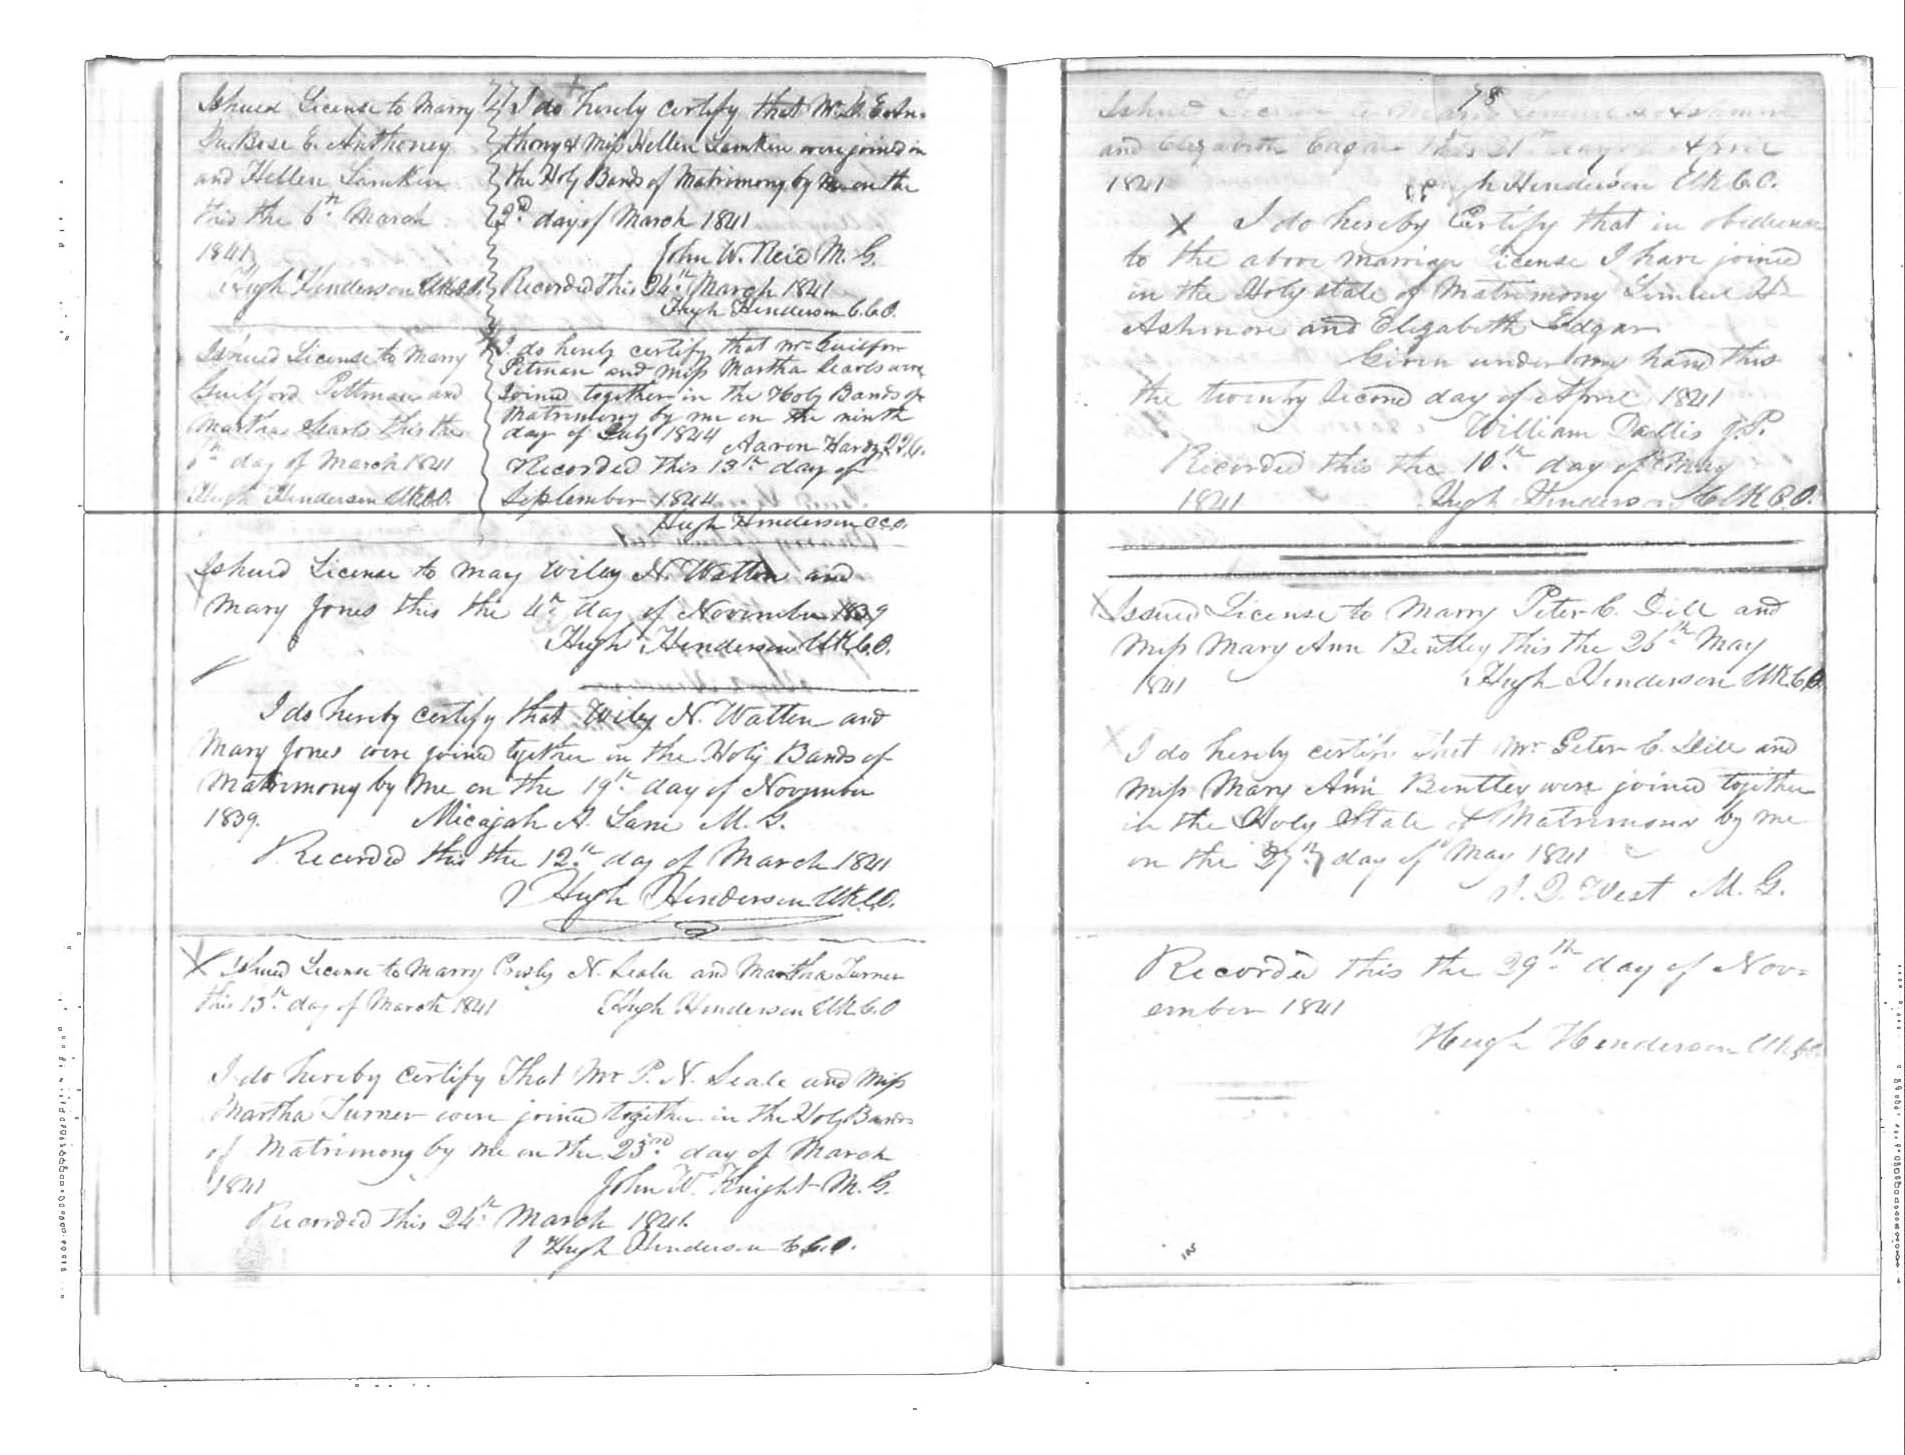 77
Ishued License to Marry
DuBose E. Anthoney
and Hellen Lamkin
this the 6th March
1841
Hugh Henderson Clk C.O.
I do hereby certify that Mr. D. E. An-
thony & Miss Hellen Lamkin were joined in
the Holy Bands of Matrimony by me on the
2nd day of March 1841
John W. Reid M. G.
Recorded this 24th March 1841
Hugh Henderson C.C.O.
Ishued License to Marry
Guilford Pittman and
Martha Searls this the
day of March 1841
Hugh Henderson Clk C.O.
I do hereby certify that Mr Guilford
Pitman and Miss Martha Searls were
Joined together in the Holy Bands of
Matrimony by me on the ninth
day of July 1844
Aaron Hardy
Recorded this 13th day of
September 1844
Hugh Henderson C.C.O.
Ishued License to may Wiley N. Watten and
Mary Jones this the 4th day of November 1839
Hugh Henderson Clk C.O.
I do hereby certify that Wiley N. Watten and
Mary Jones were joined together in the Holy Bands of
Matrimony by Me on the 19th day of November
1839. Micajah A. Lane M. G.
Recorded this the 12th day of March 1841
Hugh Henderson Clk C.O.
X Ishued License to Marry N. Seale and Martha Turner
this 13th day of March 1841 Hugh Henderson Clk C.O
I do hereby certify That Mr P. N. Seale and Miss
Martha Turner were joined together in the Holy Bands
of Matrimony by me on the 23rd day of March
1841 John W. Knight M. G.
Recorded this 24th March 1841.
Hugh Henderson C.C.O.
78
Ishued License to Ashmore
and Elizabeth Edgar this 21st day of April
1841 Hugh Henderson Clk C.O.
X I do hereby Certify that in obedience
to the above marriage License I have joined
in the Holy state of Matrimony H
Ashmore and Elizabeth Edgar
Given under my hand this
the twenty Second day of April 1841
William Dallis J.P.
Recorded this the 10th day of May
1841 Hugh Henderson Clk C.O.
X Issued License to Marry Peter C. Dill and
Miss Mary Ann Bentley this the 26th May
1841 Hugh Henderson Clk C.O.
X I do hereby certify that Mr Peter C. Dill and
Miss Mary Ann Bentley were joined together
in the Holy State of Matrimony by me
on the 27th day of May 1841
West M. G.
Recorded this the 29th day of Nov=
ember 1841
Hugh Henderson Clk C.O.